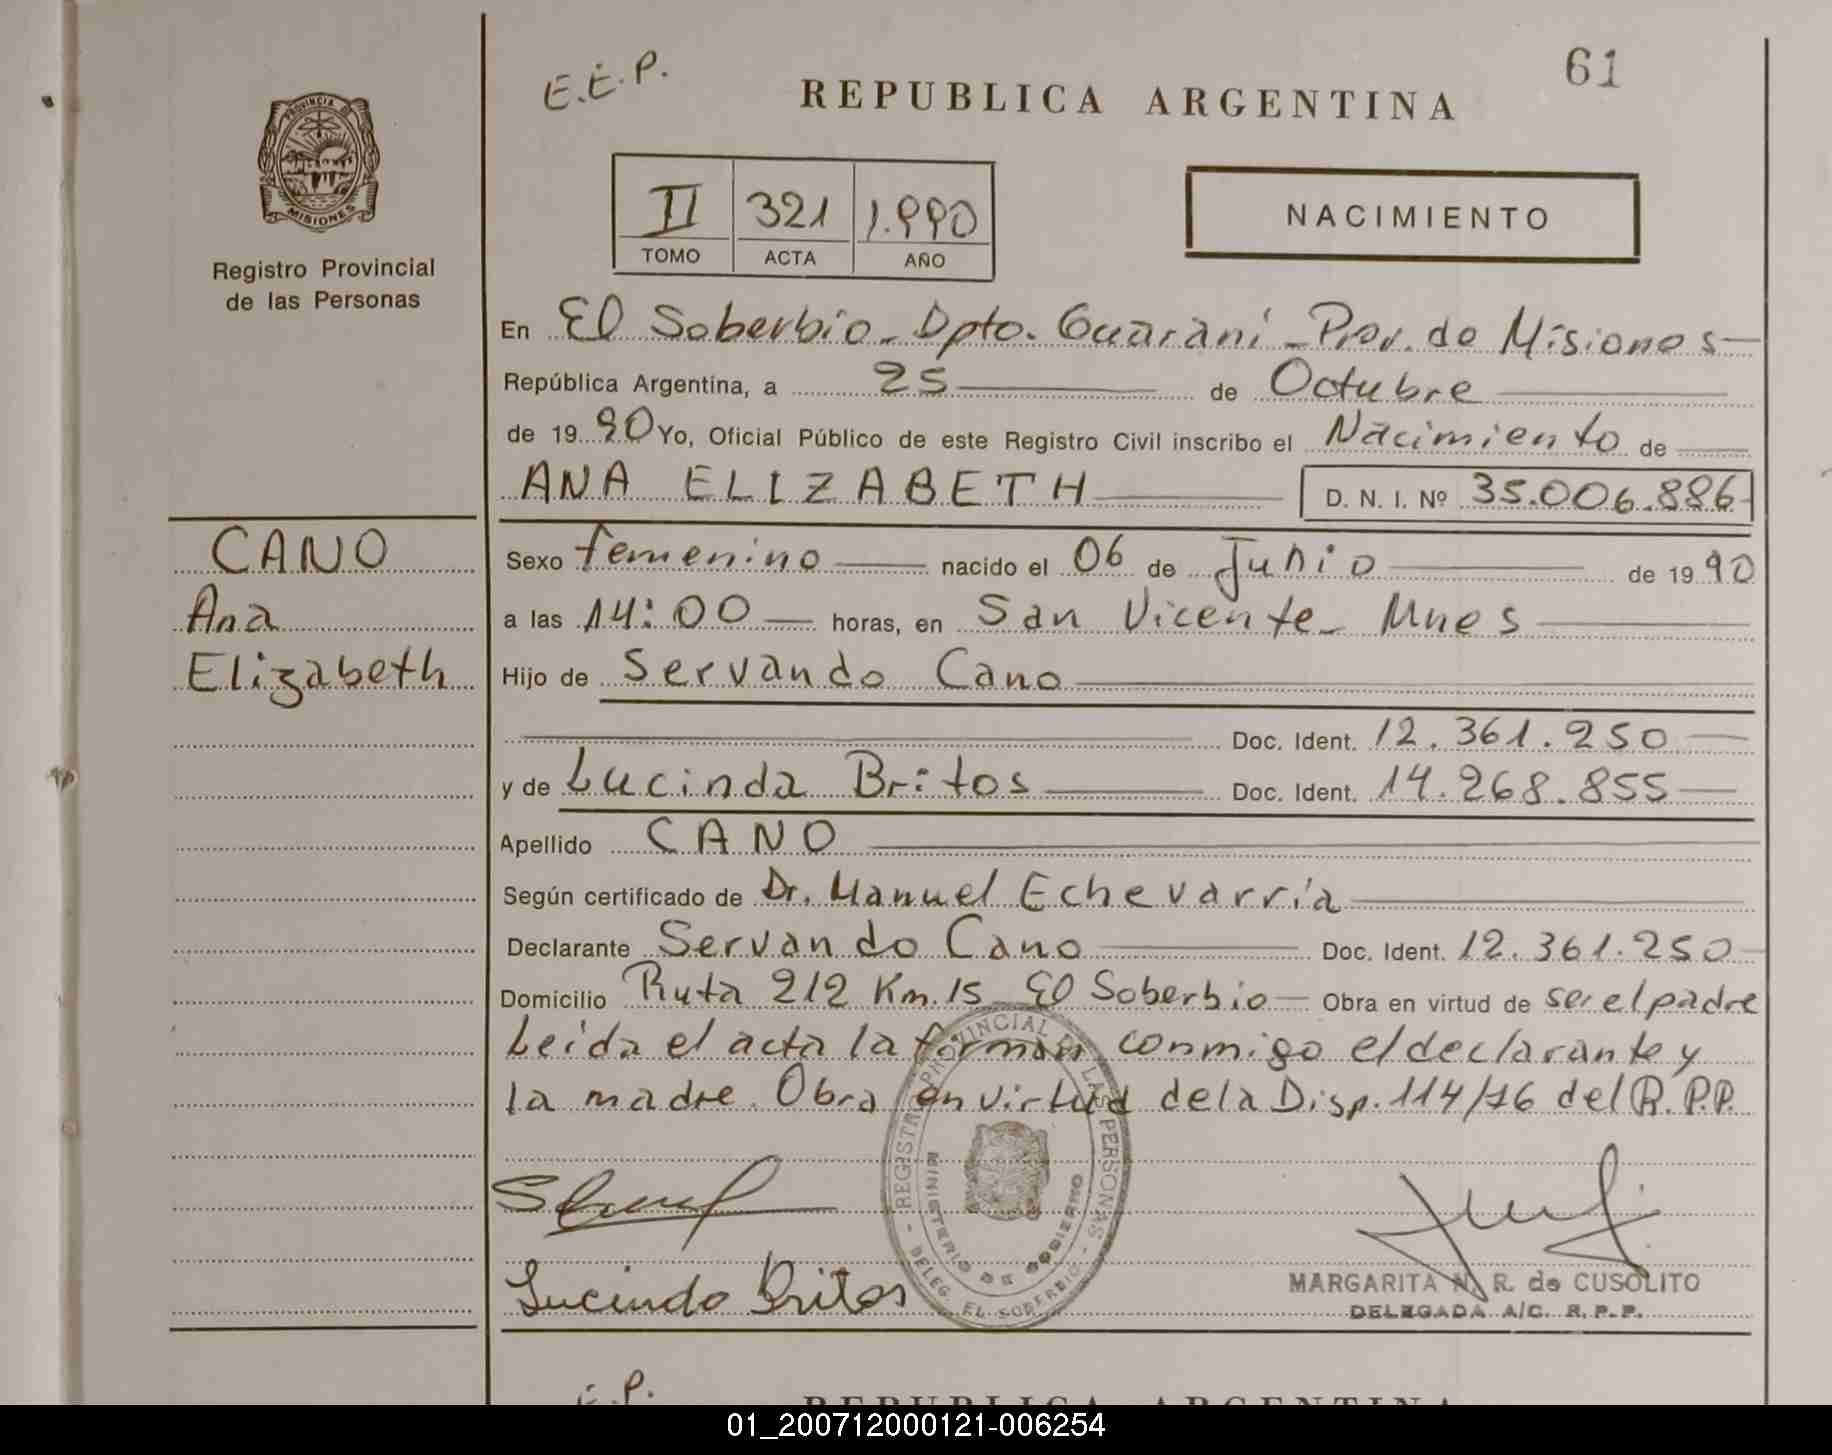 E.E.P.
61
REPUBLICA ARGENTINA
PROVINCIA DE
MISIONES
Registro Provincial
de las Personas
II 321 1.990
TOMO ACTA AÑO
NACIMIENTO
En El Soberbio - Dpto. Guaraní - Prov. de Misiones
República Argentina, a 25 de Octubre
de 1990 Yo, Oficial Público de este Registro Civil inscribo el Nacimiento de
ANA ELIZABETH D. N. I. Nº 35.006.886
CANO
Ana
Elizabeth
Sexo femenino nacido el 06 de Junio de 1990
a las 14:00 horas, en San Vicente - Mnes
Hijo de Servando Cano
Doc. Ident. 12.361.250
y de Lucinda Britos Doc. Ident. 14.268.855
Apellido CANO
Según certificado de Dr. Manuel Echevarría
Declarante Servando Cano Doc. Ident. 12.361.250
Domicilio Ruta 212 Km. 15 - El Soberbio Obra en virtud de ser el padre
Leída el acta la forman conmigo el declarante y
la madre. Obra en virtud de la Disp. 114/76 del R.P.P.
REGISTRO PROVINCIAL DE LAS PERSONAS
MINISTERIO DE GOBIERNO
DELEG. EL SOBERBIO
Lucinda Britos
MARGARITA N. R. de CUSOLITO
DELEGADA A/C. R.P.P.
E.P.
REPUBLICA ARGENTINA
01_200712000121-006254